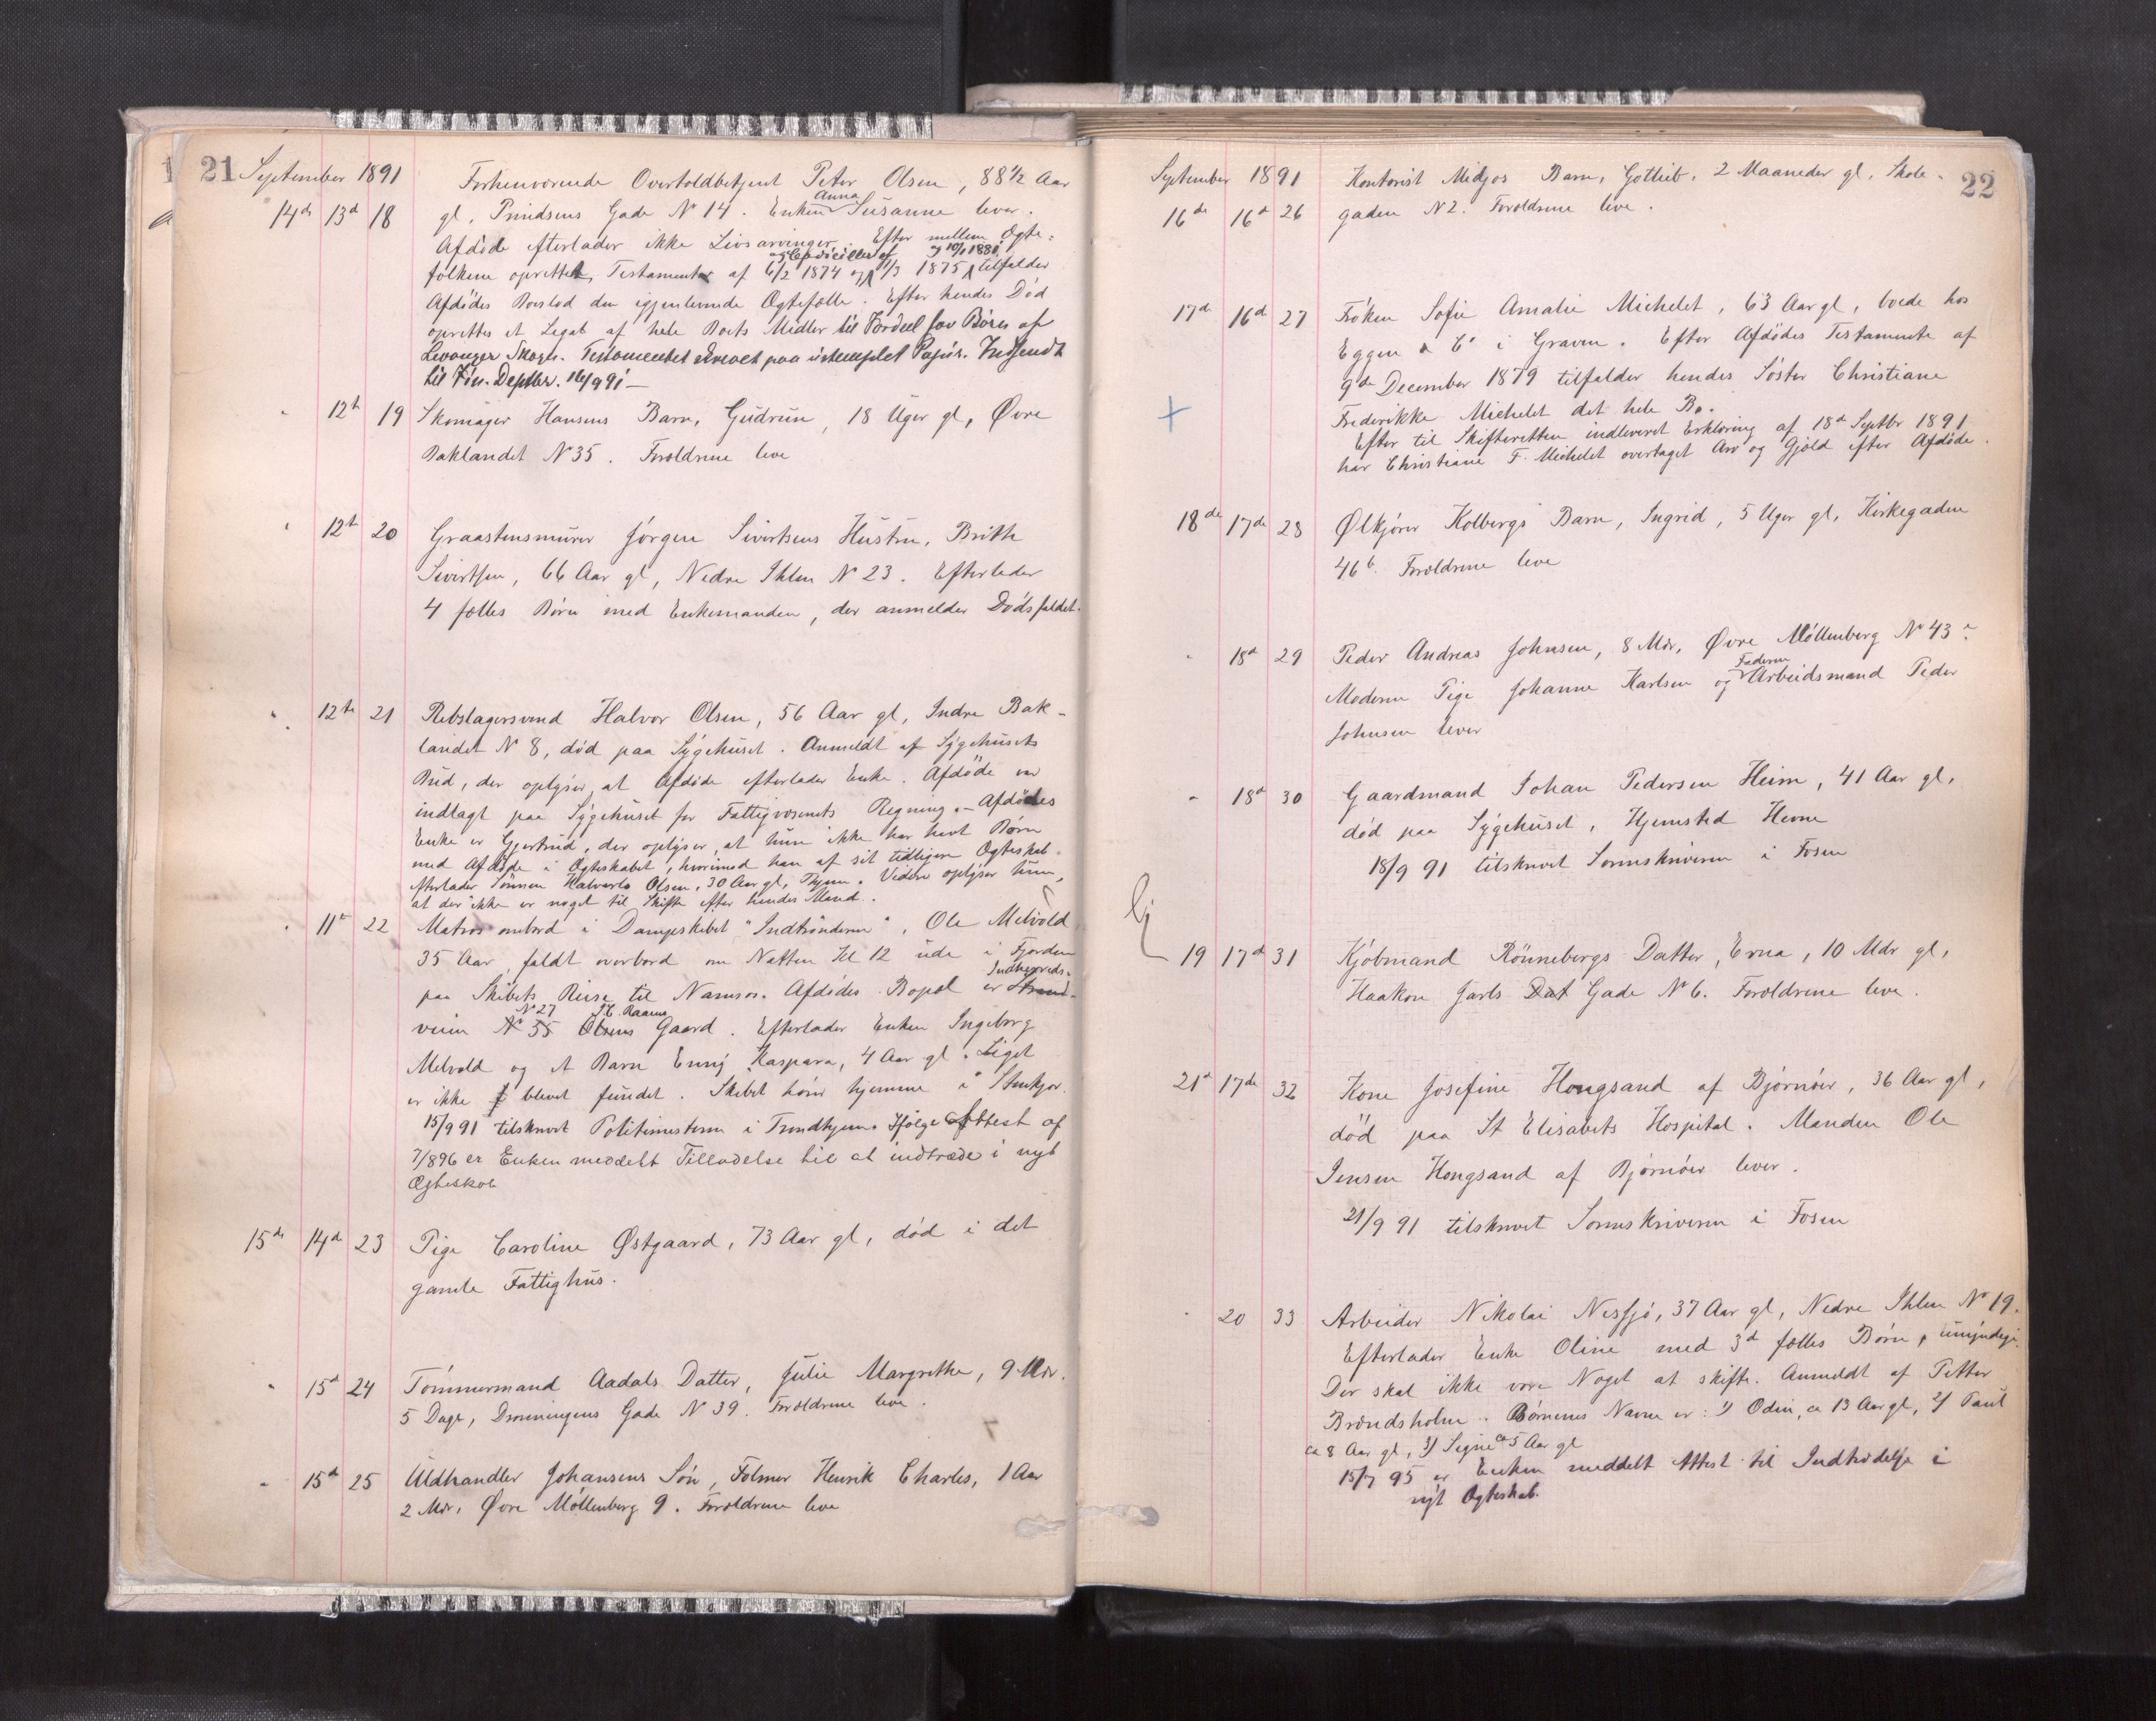 21 September 1891
Forhenværende Overtoldbetjent Peter Olsen, 88½ Aar
14de 13d 18 gl, Prindsens Gade N 14. Enken Anna Susanne lever.
Afdöde efterlader ikke Livsarvinger. Efter mellem Ægte-
og Codiciller af og 10/1 1881
folkene oprettet Testament af 6/2 1874 og 1/3 1875 tilfalder
Afdödes Boeslod den igjenlevende Ægtefælle. Efter hendes Död
oprettes et Legat af hele Boets Midler til Fordeel for Börn af
Levanger Skogn. Testamentet skrevet paa ustemplet Papir. Indsendt
til Fin. Deptet. 16/9 91 —
" 12t 19 Skomager Hansens Barn, Gudrun, 18 Uger gl, Øvre
Baklandet N 35. Forældrene leve
" 12t 20 Graastensmurer Jörgen Sivertsens Hustru, Brith
Sivertsen, 66 Aar gl, Nedre Ihlen N 23. Efterlader
4 fælles Börn med Enkemanden, der anmelder Dödsfaldet.
" 12te 21 Rebslagersvend Halvor Olsen, 56 Aar gl, Indre Bak-
landet N 8, död paa Sygehuset. Anmeldt af Sygehusets
Bud, der oplyser, at Afdöde efterlader Enke. Afdöde var
indlagt paa Sygehuset for Fattigvæsenets Regning. – Afdödes
Enke er Gjertrud, der oplyser, at hun ikke har havt Börn
med Afdöde i Ægteskabet, hvorimod han af sit tidligere Ægteskab
efterlader Sönnen Halvard Olsen, 30 Aar gl, Thjem. Videre oplyser hun,
at der ikke er noget til Skifte efter hendes Mand.
" 11t 22 Matros ombord i Dampskibet "Indtrönderen", Ole Melvold
35 Aar, faldt overbord om Natten Kl 12 ude i Fjorden
paa Skibets Reise til Namsos. Afdödes Bopæl er Strand- Indherreds-
N 27
veien N 35 Olsens Gaard. Efterlader Enken Ingeborg
Melvold og et Barn Enny Kaspara, 4 Aar gl. Liget
er ikke blevet fundet. Skibet hörer hjemme i Stenkjær.
15/9 91 tilskrevet Politimesteren i Trondhjem. Ifölge Attest af
7/8 96 er Enken meddelt Tilladelse til at indtræde i nyt
Ægteskab
15de 14d 23 Pige Caroline Østgaard, 73 Aar gl, död i det
gamle Fattighus.
" 15d 24 Tömmermand Aadals Datter, Julie Margrethe, 9 Mdr.
5 Dage, Dronningens Gade N 39. Forældrene leve.
" 15d 25 Uldhandler Johansens Sön, Folmer Henrik Charles, 1 Aar
2 Mdr, Øvre Möllenberg 9. Forældrene leve
22
September 1891 Kontorist Midjos Barn, Gottlieb, 2 Maaneder gl, Skole-
16de 16d 26 gaden N 2. Forældrene leve.
17de 16d 27 Fröken Sofie Amalie Michelet, 63 Aar gl, boede hos
Eggen i Graven. Efter Afdödes Testamente af
9de December 1879 tilfalder hendes Söster Christiane
Frederikke Michelet det hele Bo.
Efter til Skifteretten indleveret Erklæring af 18d Septbr 1891
har Christiane F. Michelet overtaget Arv og Gjæld efter Afdöde.
18de 17de 28 Ølkjörer Kolbergs Barn, Ingrid, 5 Uger gl, Kirkegaden
46b. Forældrene leve
" 18d 29 Peder Andreas Johnsen, 8 Mdr, Øvre Möllenberg N 43a.
Moderen Pige Johanne Karlsen og Faderen Arbeidsmand Peder
Johnsen lever
" 18d 30 Gaardmand Johan Pedersen Heim, 41 Aar gl,
död paa Sygehuset, Hjemsted Hevne
18/9 91 tilskrevet Sorenskriveren i Fosen
19 17d 31 Kjöbmand Rönnebergs Datter, Erna, 10 Mdr gl,
Haakon Jarls Dat Gade N 6. Forældrene leve.
21d 17de 32 Kone Josefine Hongsand af Björnör, 36 Aar gl,
död paa St Elisabets Hospital. Manden Ole
Jensen Hongsand af Björnör lever.
21/9 91 tilskrevet Sorenskriveren i Fosen
" 20 33 Arbeider Nikolai Nessjö, 37 Aar gl, Nedre Ihlen N 19.
Efterlader Enke Oline med 3d fælles Börn, umyndige.
Der skal ikke være Noget at skifte. Anmeldt af Petter
Brændsholm. Börnenes Navne er: 1) Odin, ca 13 Aar gl, 2) Paul
ca 8 Aar gl, 3) Signe ca 5 Aar gl
15/7 95 er Enken meddelt Attest til Indtrædelse i
nyt Ægteskab.